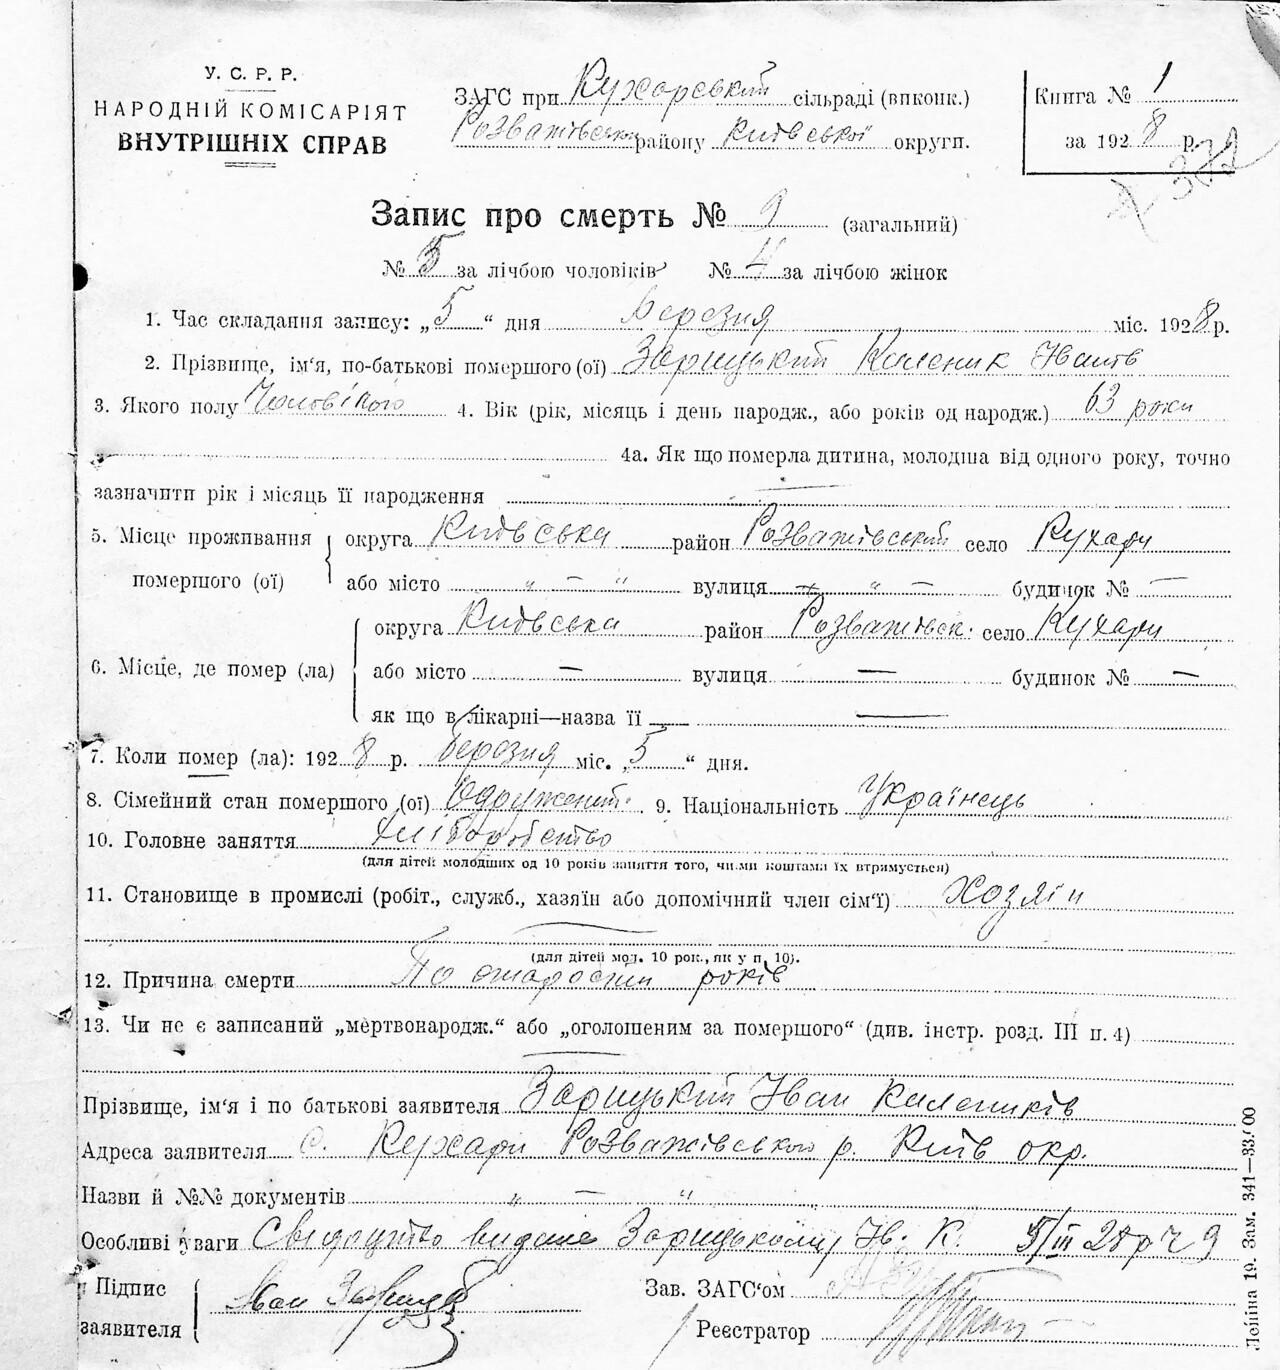 У. С. Р. Р.
НАРОДНІЙ КОМІСАРІЯТ
ВНУТРІШНІХ СПРАВ
ЗАГС при Кухарський сільраді (виконк.)
Розважівськ району Київської округи.
Книга № 1
за 1928 р.
372
Запис про смерть № 9 (загальний)
№ 5 за лічбою чоловіків № 4 за лічбою жінок
1. Час складання запису: „5“ дня березня міс. 1928 р.
2. Прізвище, ім'я, по-батькові помершого (ої) Зарицький Каленик Іванів
3. Якого полу Чоловічого 4. Вік (рік, місяць і день народж., або років од народж.) 63 роки
4а. Як що померла дитина, молодша від одного року, точно
зазначити рік і місяць її народження —
5. Місце проживання помершого (ої) округа Київська район Розважівський село Кухари
або місто „ — “ вулиця „ — будинок № —
6. Місце, де помер (ла) округа Київська район Розважівськ. село Кухари
або місто — вулиця — будинок № —
як що в лікарні—назва її — —
7. Коли помер (ла): 1928 р. березня міс. „5“ дня.
8. Сімейний стан помершого (ої) Одружений. 9. Національність Українець
10. Головне заняття Хліборобство
(для дітей молодших од 10 років заняття того, чи.ми коштами їх втримується)
11. Становище в промислі (робіт., служб., хазяїн або допомічний член сім'ї) Хозяїн
(для дітей мол. 10 рок., як у п. 10).
12. Причина смерти По старости років
13. Чи не є записаний „мертвонародж.“ або „оголошеним за помершого“ (див. інстр. розд. III п. 4)
—
Прізвище, ім'я і по батькові заявителя Зарицький Іван Калеників
Адреса заявителя С. Кухари Розважівського р. Київ окр.
Назви й №№ документів „ — “
Особливі уваги Свідоцтво видане Зарицькому Ів. К. 5/III 28 р Ч 9
Підпис заявителя Іван Зарицький
Зав. ЗАГС'ом
Реєстратор
Леніна 19. Зам. 341—33.000